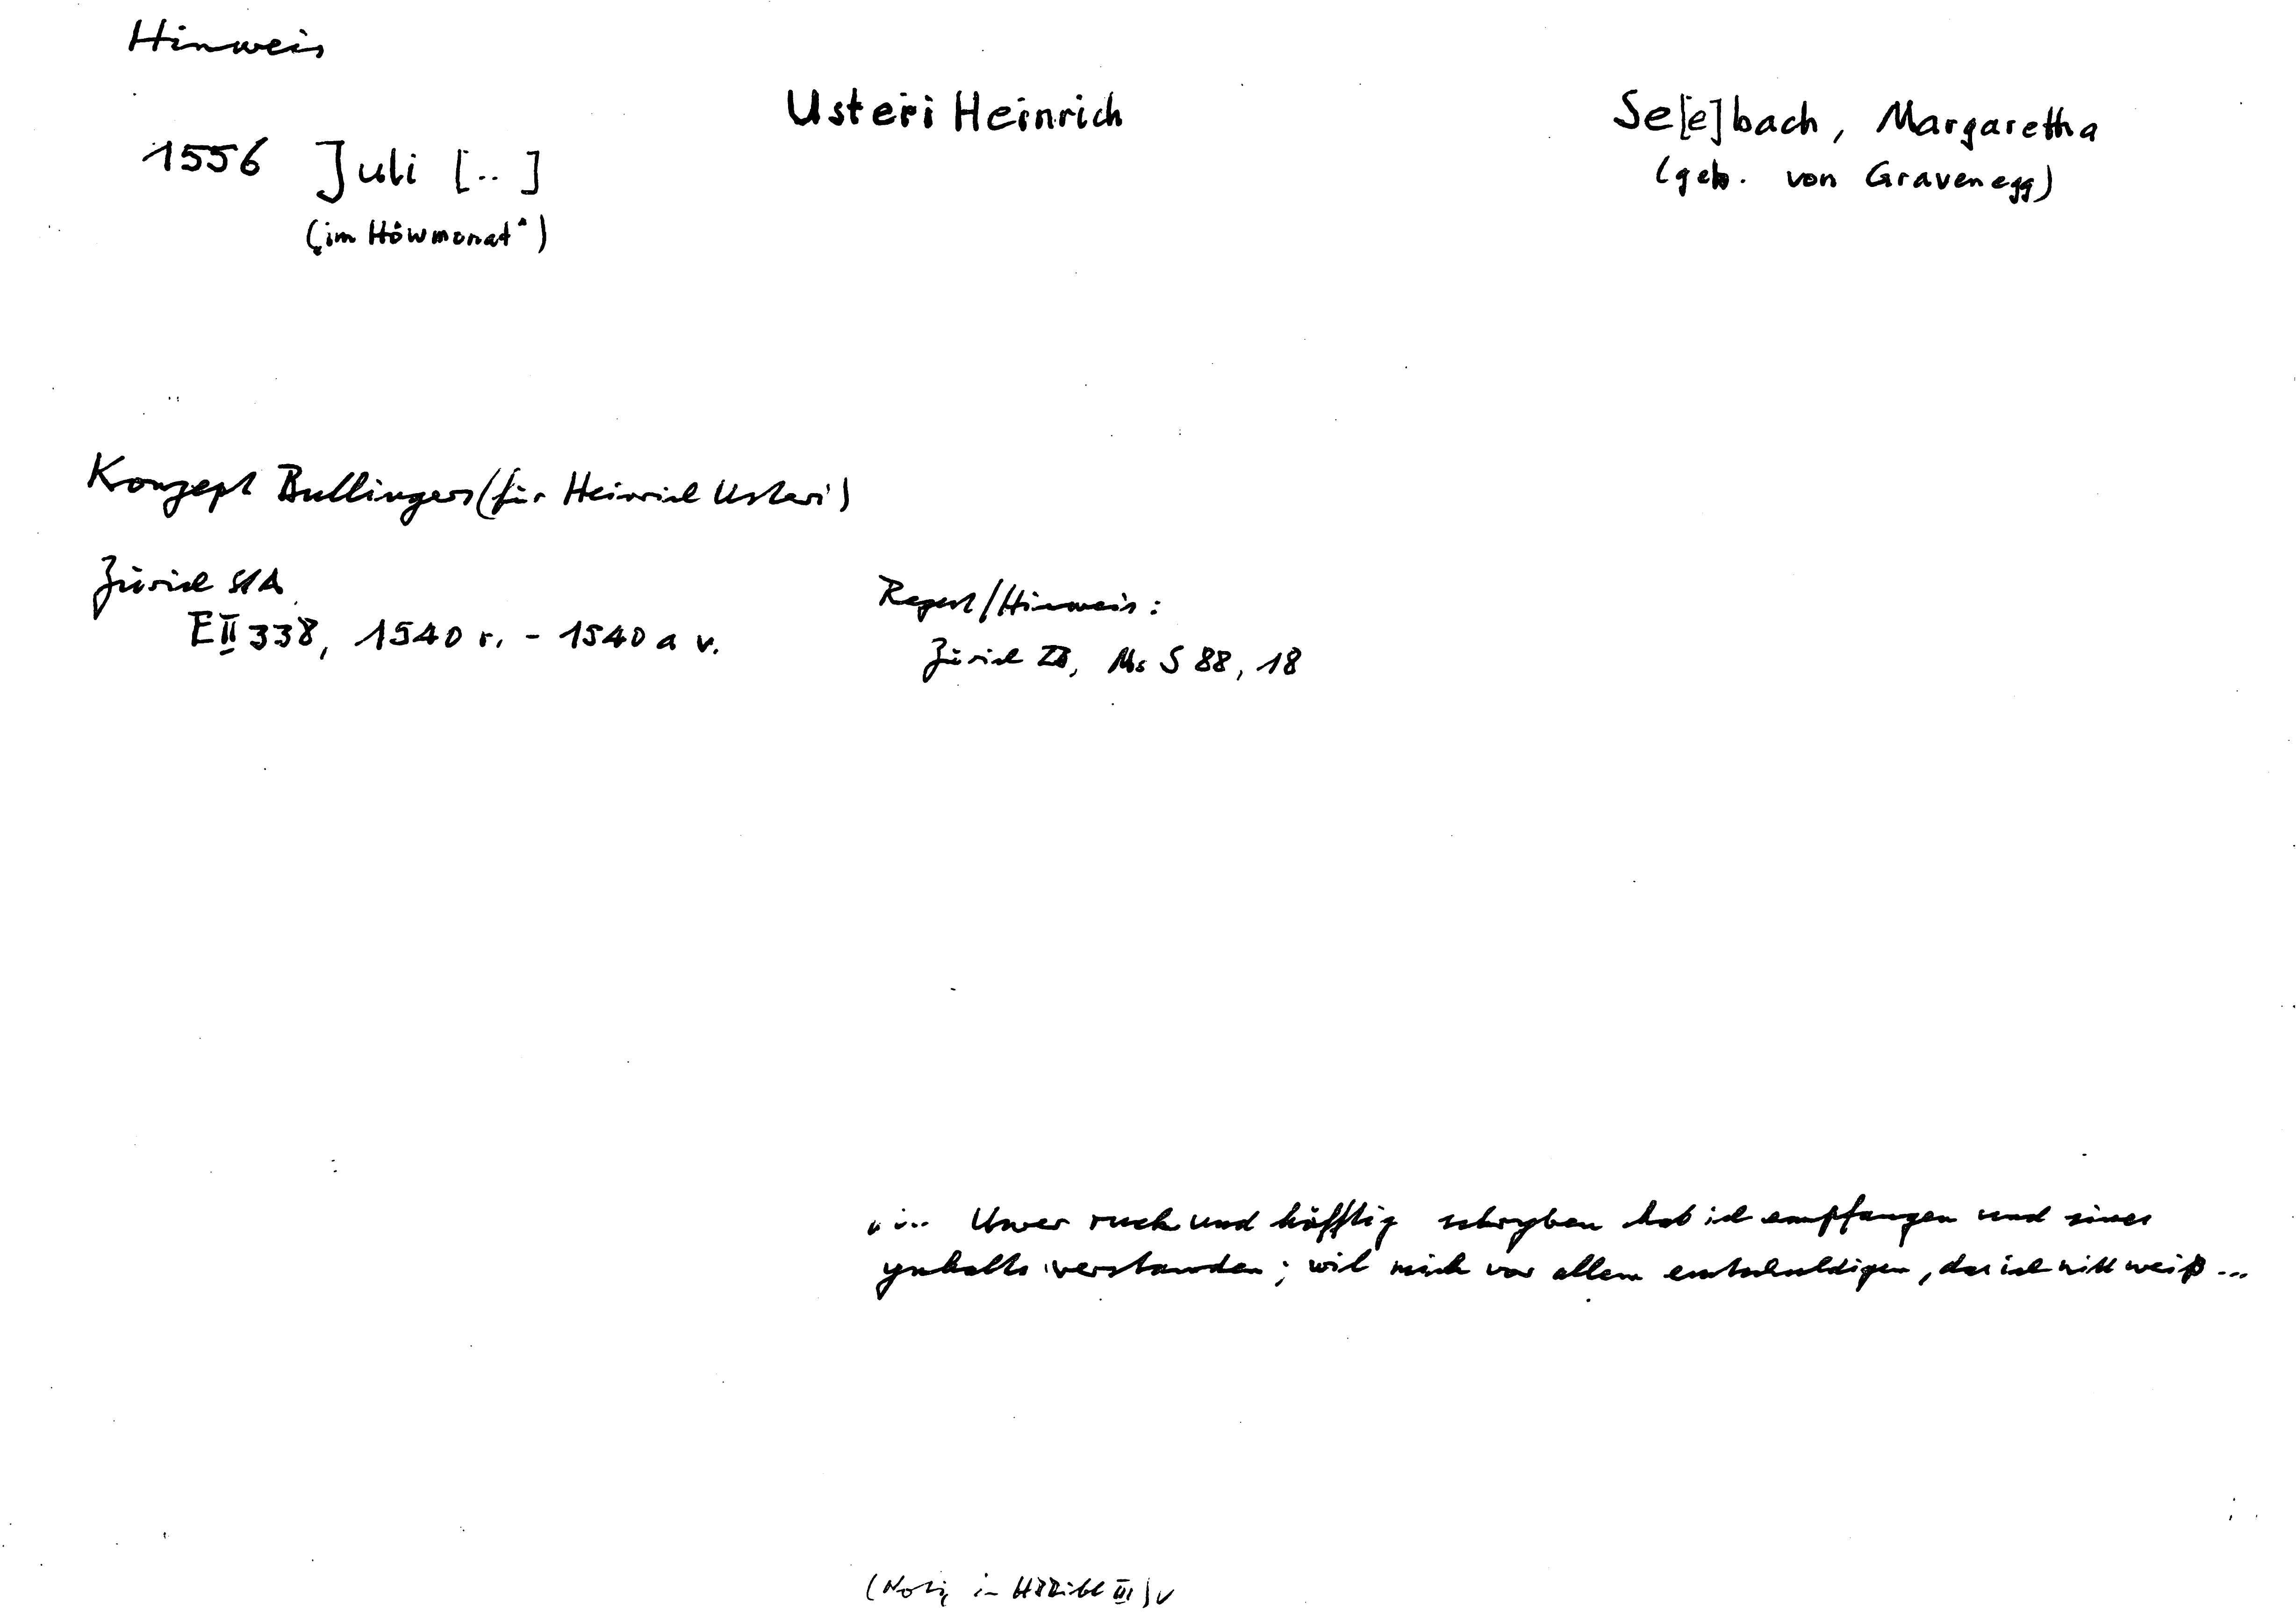 Hinweis
Usteri Heinrich
Se[e]bach, Margaretha
(geb. von Gravenegg)
1556 Juli [..]
(„im Höwmonat“)
Konzept Bullingers (für Heinrich Usteri)
Zürich StA
E II 338, 1540 r. - 1540 a v.
Regest/Hinweis:
Zürich ZB, Ms S 88, 18
„... Unver ruch und häfftig schryben hab ich empfangen und sines
ynhalts verstanden; wil mich vor allem entschuldigen, das ich nitt weiß ...
(Notiz in HBBibl III) v